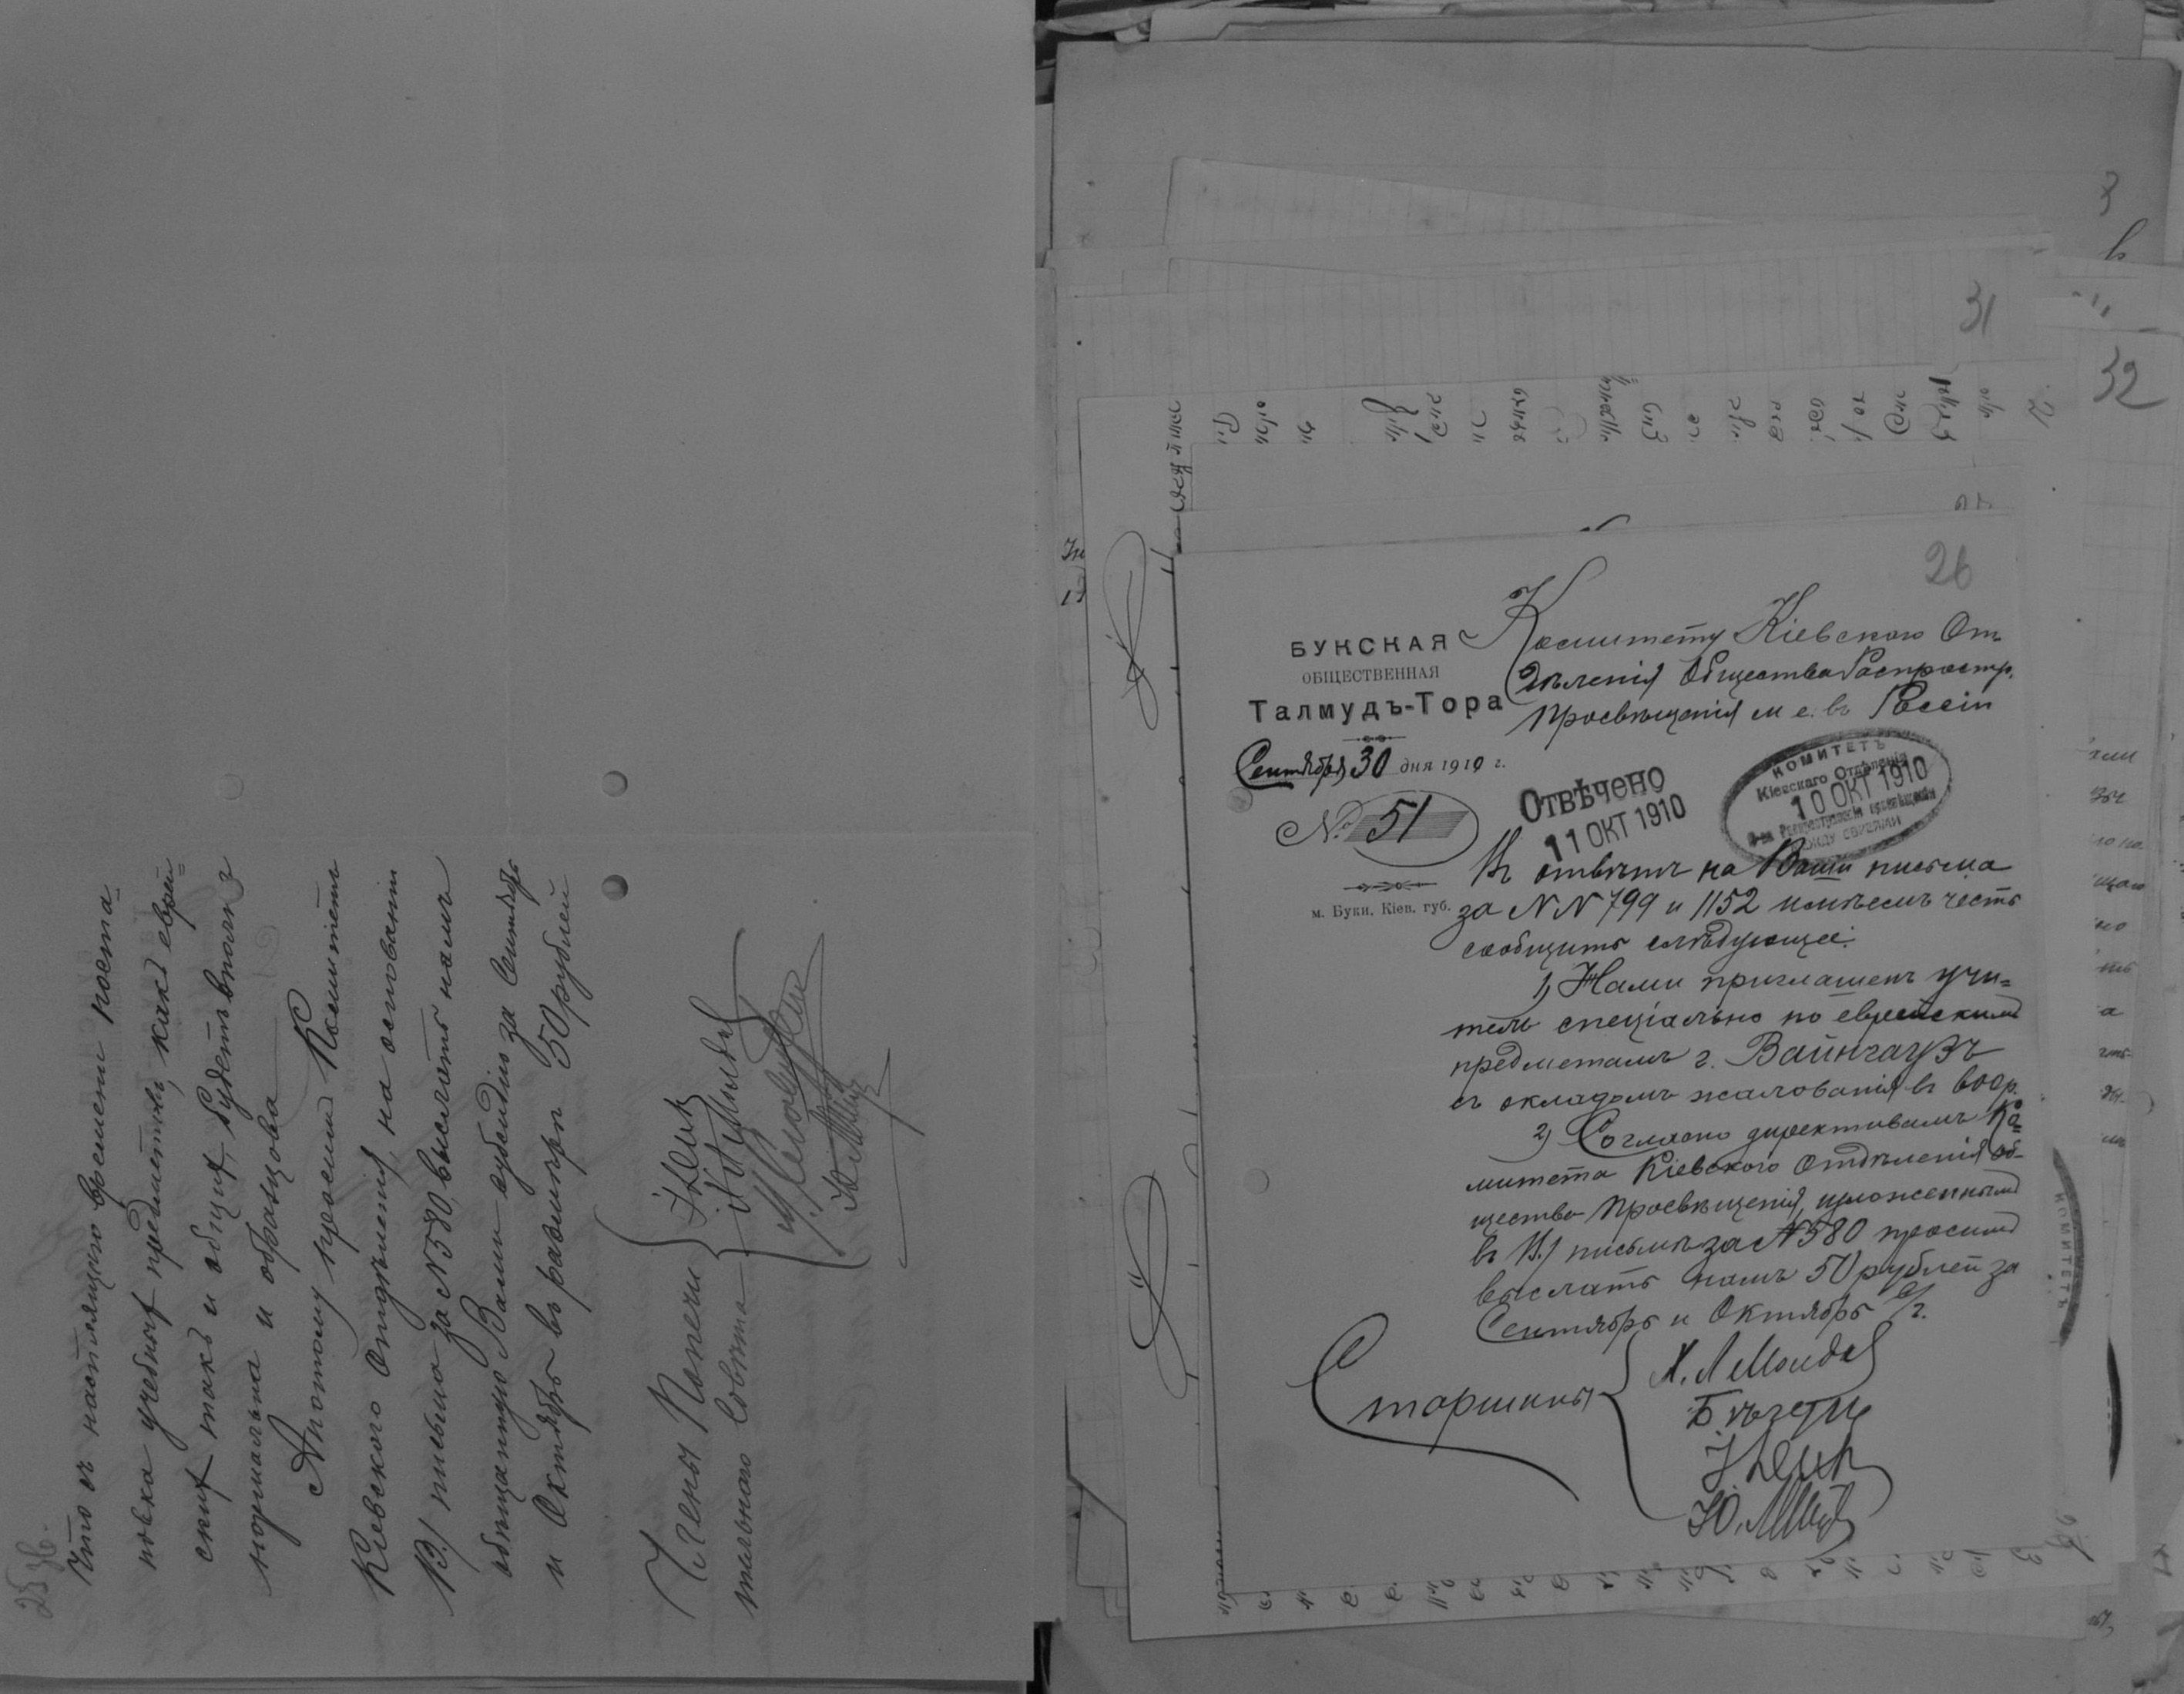 25 об.
Что съ настоящаго времени поста-
новка учебныхъ предметовъ, какъ еврей-
скихъ такъ и общихъ, будетъ вполнѣ
нормальна и образцова
Апотому просимъ Комитетъ
Кіевского Отдѣленія, на основаніи
В./ письма за №580, выслать намъ
обѣщанную Вами субсидію за Сентябрь
и Октябрь въ размѣрѣ 50 рублей
Члены Попечи
тельного Совѣта
31
32
26
БУКСКАЯ
ОБЩЕСТВЕННАЯ
Талмудъ-Тора
Сентября 30 дня 1910 г.
№ 51
м. Буки, Кіев. губ.
Комитету Кіевского От-
дѣленія Общества Распростр.
Просвѣщенія м. е. въ Россіи
Отвѣчено
11 ОКТ 1910
КОМИТЕТЪ
Кіевскаго Отдѣленія
10 ОКТ 1910
МЕЖДУ ЕВРЕЯМИ
Въ отвѣтъ на Ваши письма
за NN 799 и 1152 имѣемъ честь
сообщить слѣдующее:
1) Нами приглашенъ учи-
тель спеціально по еврейскимъ
предметамъ г. Вайнгаузъ
съ окладомъ жалованія въ 600 р.
2) Согласно директивамъ Ко-
митета Кіевского Отдѣленія об-
щества Просвѣщенія, изложеннымъ
въ В./ письмѣ за №580 просимъ
выслать намъ 50 рублей за
Сентябрь и Октябрь с/г.
Старшины
КОМИТЕТЪ